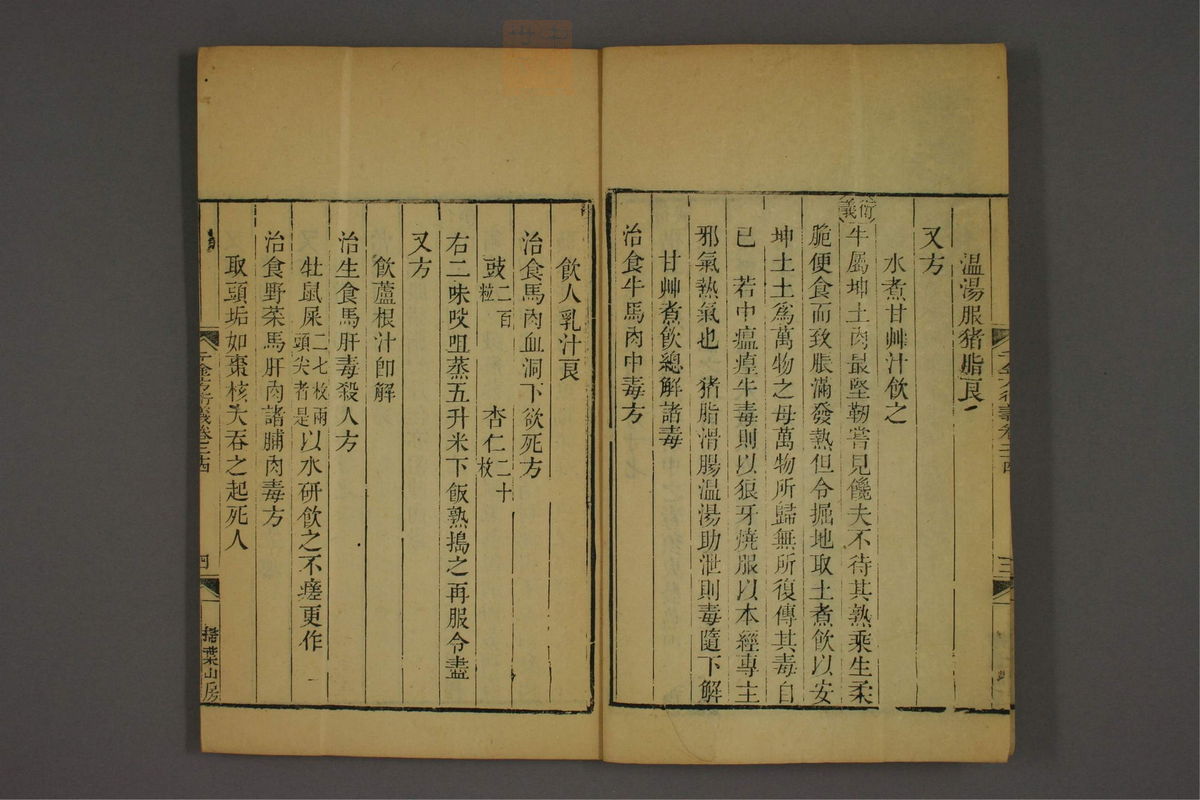 温湯服猪脂良
又方
水煮甘艸汁飲之
衍義
牛屬坤土肉最堅韌嘗見饞夫不待其熟乘生柔
脆便食而致脹滿發熱但令掘地取土煮飲以安
坤土土爲萬物之母萬物所歸無所復傳其毒自
已 若中瘟瘴牛毒則以狼牙燒服以本經專主
邪氣熱氣也 猪脂滑腸温湯助泄則毒隨下解
甘艸煮飲總解諸毒
治食牛馬肉中毒方
飲人乳汁良
治食馬肉血洞下欲死方
豉二百粒 杏仁二十枚
右二味㕮咀蒸五升米下飯熟搗之再服令盡
又方
飲蘆根汁卽解
治生食馬肝毒殺人方
牡鼠屎二七枚兩頭尖者是以水研飲之不瘥更作
治食野菜馬肝肉諸脯肉毒方
取頭垢如棗核大吞之起死人
千金方衍義卷二十四
四
掃葉山房